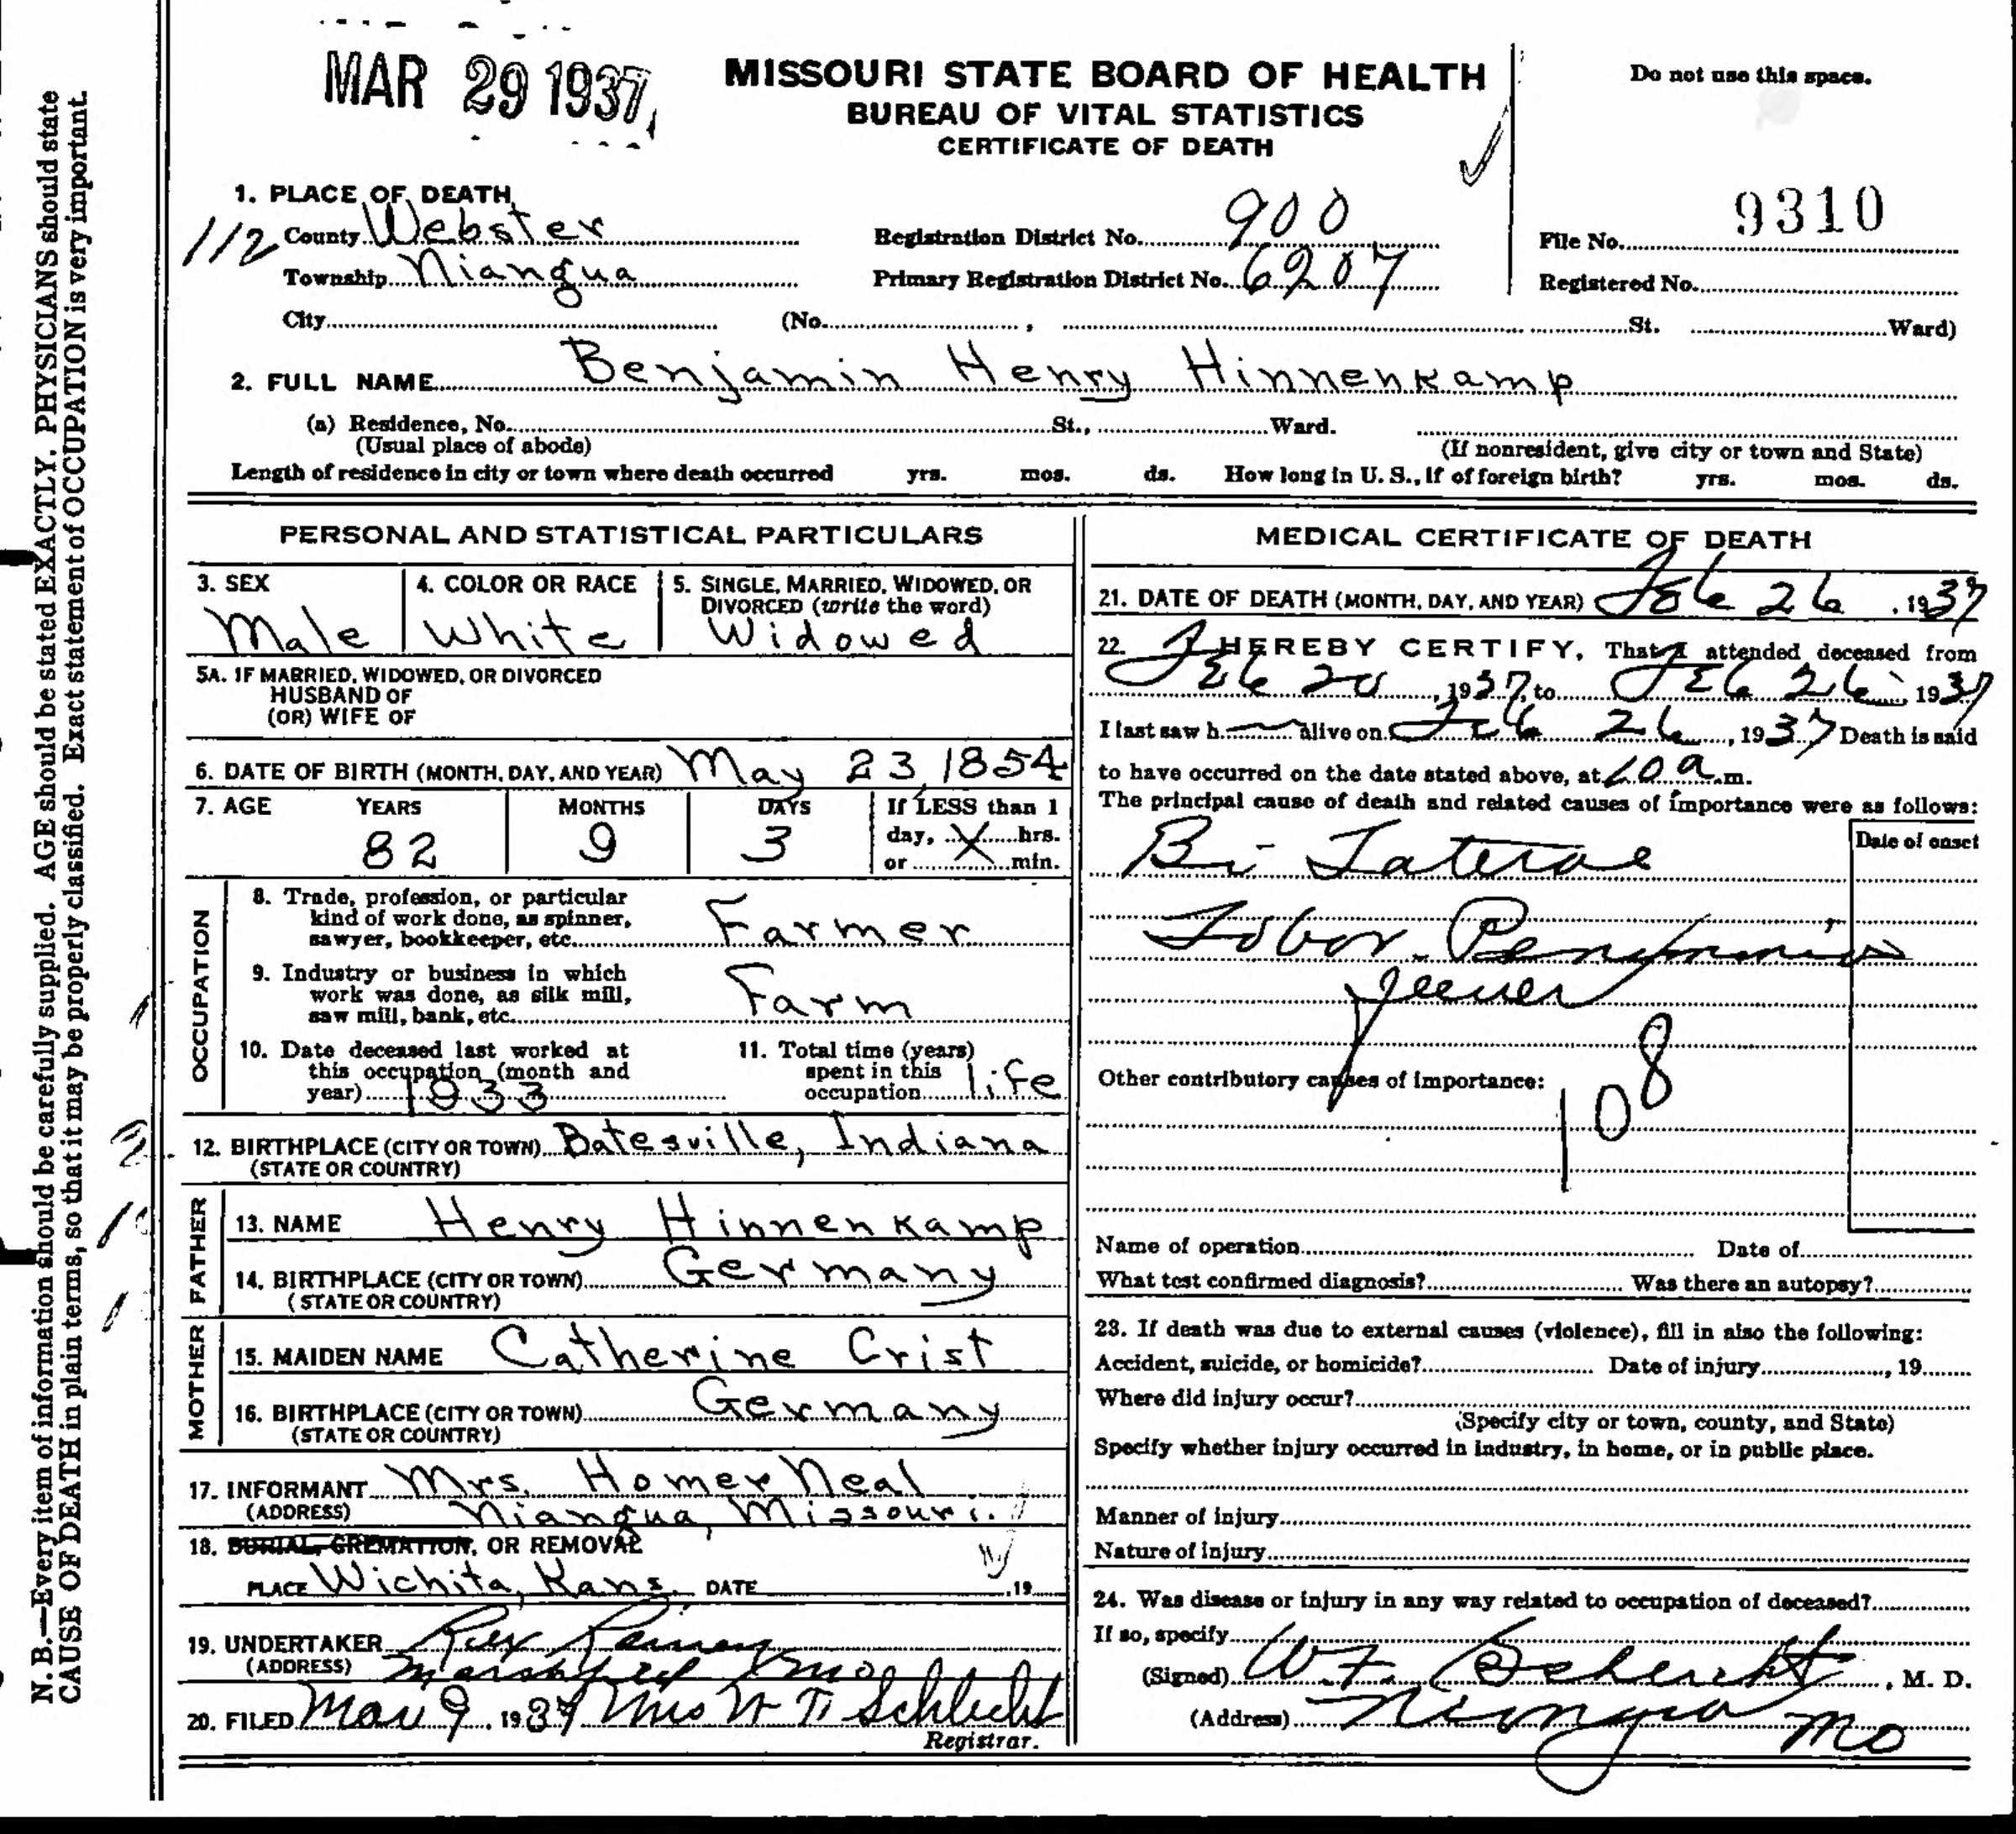 MAR 29 1937
MISSOURI STATE BOARD OF HEALTH
BUREAU OF VITAL STATISTICS
CERTIFICATE OF DEATH
Do not use this space.
1. PLACE OF DEATH
112 County Webster Registration District No. 900 File No. 9310
Township Niangua Primary Registration District No. 6207 Registered No.
City (No. , St. Ward)
2. FULL NAME Benjamin Henry Hinnenkamp
(a) Residence, No. St., Ward.
(Usual place of abode) (If nonresident, give city or town and State)
Length of residence in city or town where death occurred yrs. mos. ds. How long in U. S., if of foreign birth? yrs. mos. ds.
PERSONAL AND STATISTICAL PARTICULARS
3. SEX 4. COLOR OR RACE 5. SINGLE, MARRIED, WIDOWED, OR
DIVORCED (write the word)
Male White Widowed
5A. IF MARRIED, WIDOWED, OR DIVORCED
HUSBAND OF
(OR) WIFE OF
6. DATE OF BIRTH (MONTH, DAY, AND YEAR) May 23 1854
7. AGE YEARS MONTHS DAYS If LESS than 1
82 9 3 day, X hrs.
or min.
OCCUPATION
8. Trade, profession, or particular
kind of work done, as spinner,
sawyer, bookkeeper, etc. Farmer
9. Industry or business in which
work was done, as silk mill,
saw mill, bank, etc. Farm
10. Date deceased last worked at
this occupation (month and
year) 1933
11. Total time (years)
spent in this
occupation life
12. BIRTHPLACE (CITY OR TOWN) Batesville, Indiana
(STATE OR COUNTRY)
FATHER
13. NAME Henry Hinnenkamp
14. BIRTHPLACE (CITY OR TOWN) Germany
(STATE OR COUNTRY)
MOTHER
15. MAIDEN NAME Catherine Crist
16. BIRTHPLACE (CITY OR TOWN) Germany
(STATE OR COUNTRY)
17. INFORMANT Mrs. Homer Neal
(ADDRESS) Niangua, Missouri.
18. BURIAL, CREMATION, OR REMOVAL
PLACE Wichita, Kans. DATE 19
19. UNDERTAKER Rex Rainey
(ADDRESS) Marshfield Mo
20. FILED Mar 9, 1937 Mrs W T Schlecht
Registrar.
MEDICAL CERTIFICATE OF DEATH
21. DATE OF DEATH (MONTH, DAY, AND YEAR) Feb 26, 1937
22. I HEREBY CERTIFY, That I attended deceased from
Feb 20, 1937, to Feb 26 1937
I last saw h alive on Feb 26, 1937 Death is said
to have occurred on the date stated above, at 10 a.m.
The principal cause of death and related causes of importance were as follows:
Date of onset
Bi-Lateral
Lobar
Other contributory causes of importance:
108
Name of operation Date of
What test confirmed diagnosis? Was there an autopsy?
23. If death was due to external causes (violence), fill in also the following:
Accident, suicide, or homicide? Date of injury , 19
Where did injury occur?
(Specify city or town, county, and State)
Specify whether injury occurred in industry, in home, or in public place.
Manner of injury
Nature of injury
24. Was disease or injury in any way related to occupation of deceased?
If so, specify
(Signed) W. F. , M. D.
(Address) Niangua Mo
N. B.—Every item of information should be carefully supplied. AGE should be stated EXACTLY. PHYSICIANS should state
CAUSE OF DEATH in plain terms, so that it may be properly classified. Exact statement of OCCUPATION is very important.